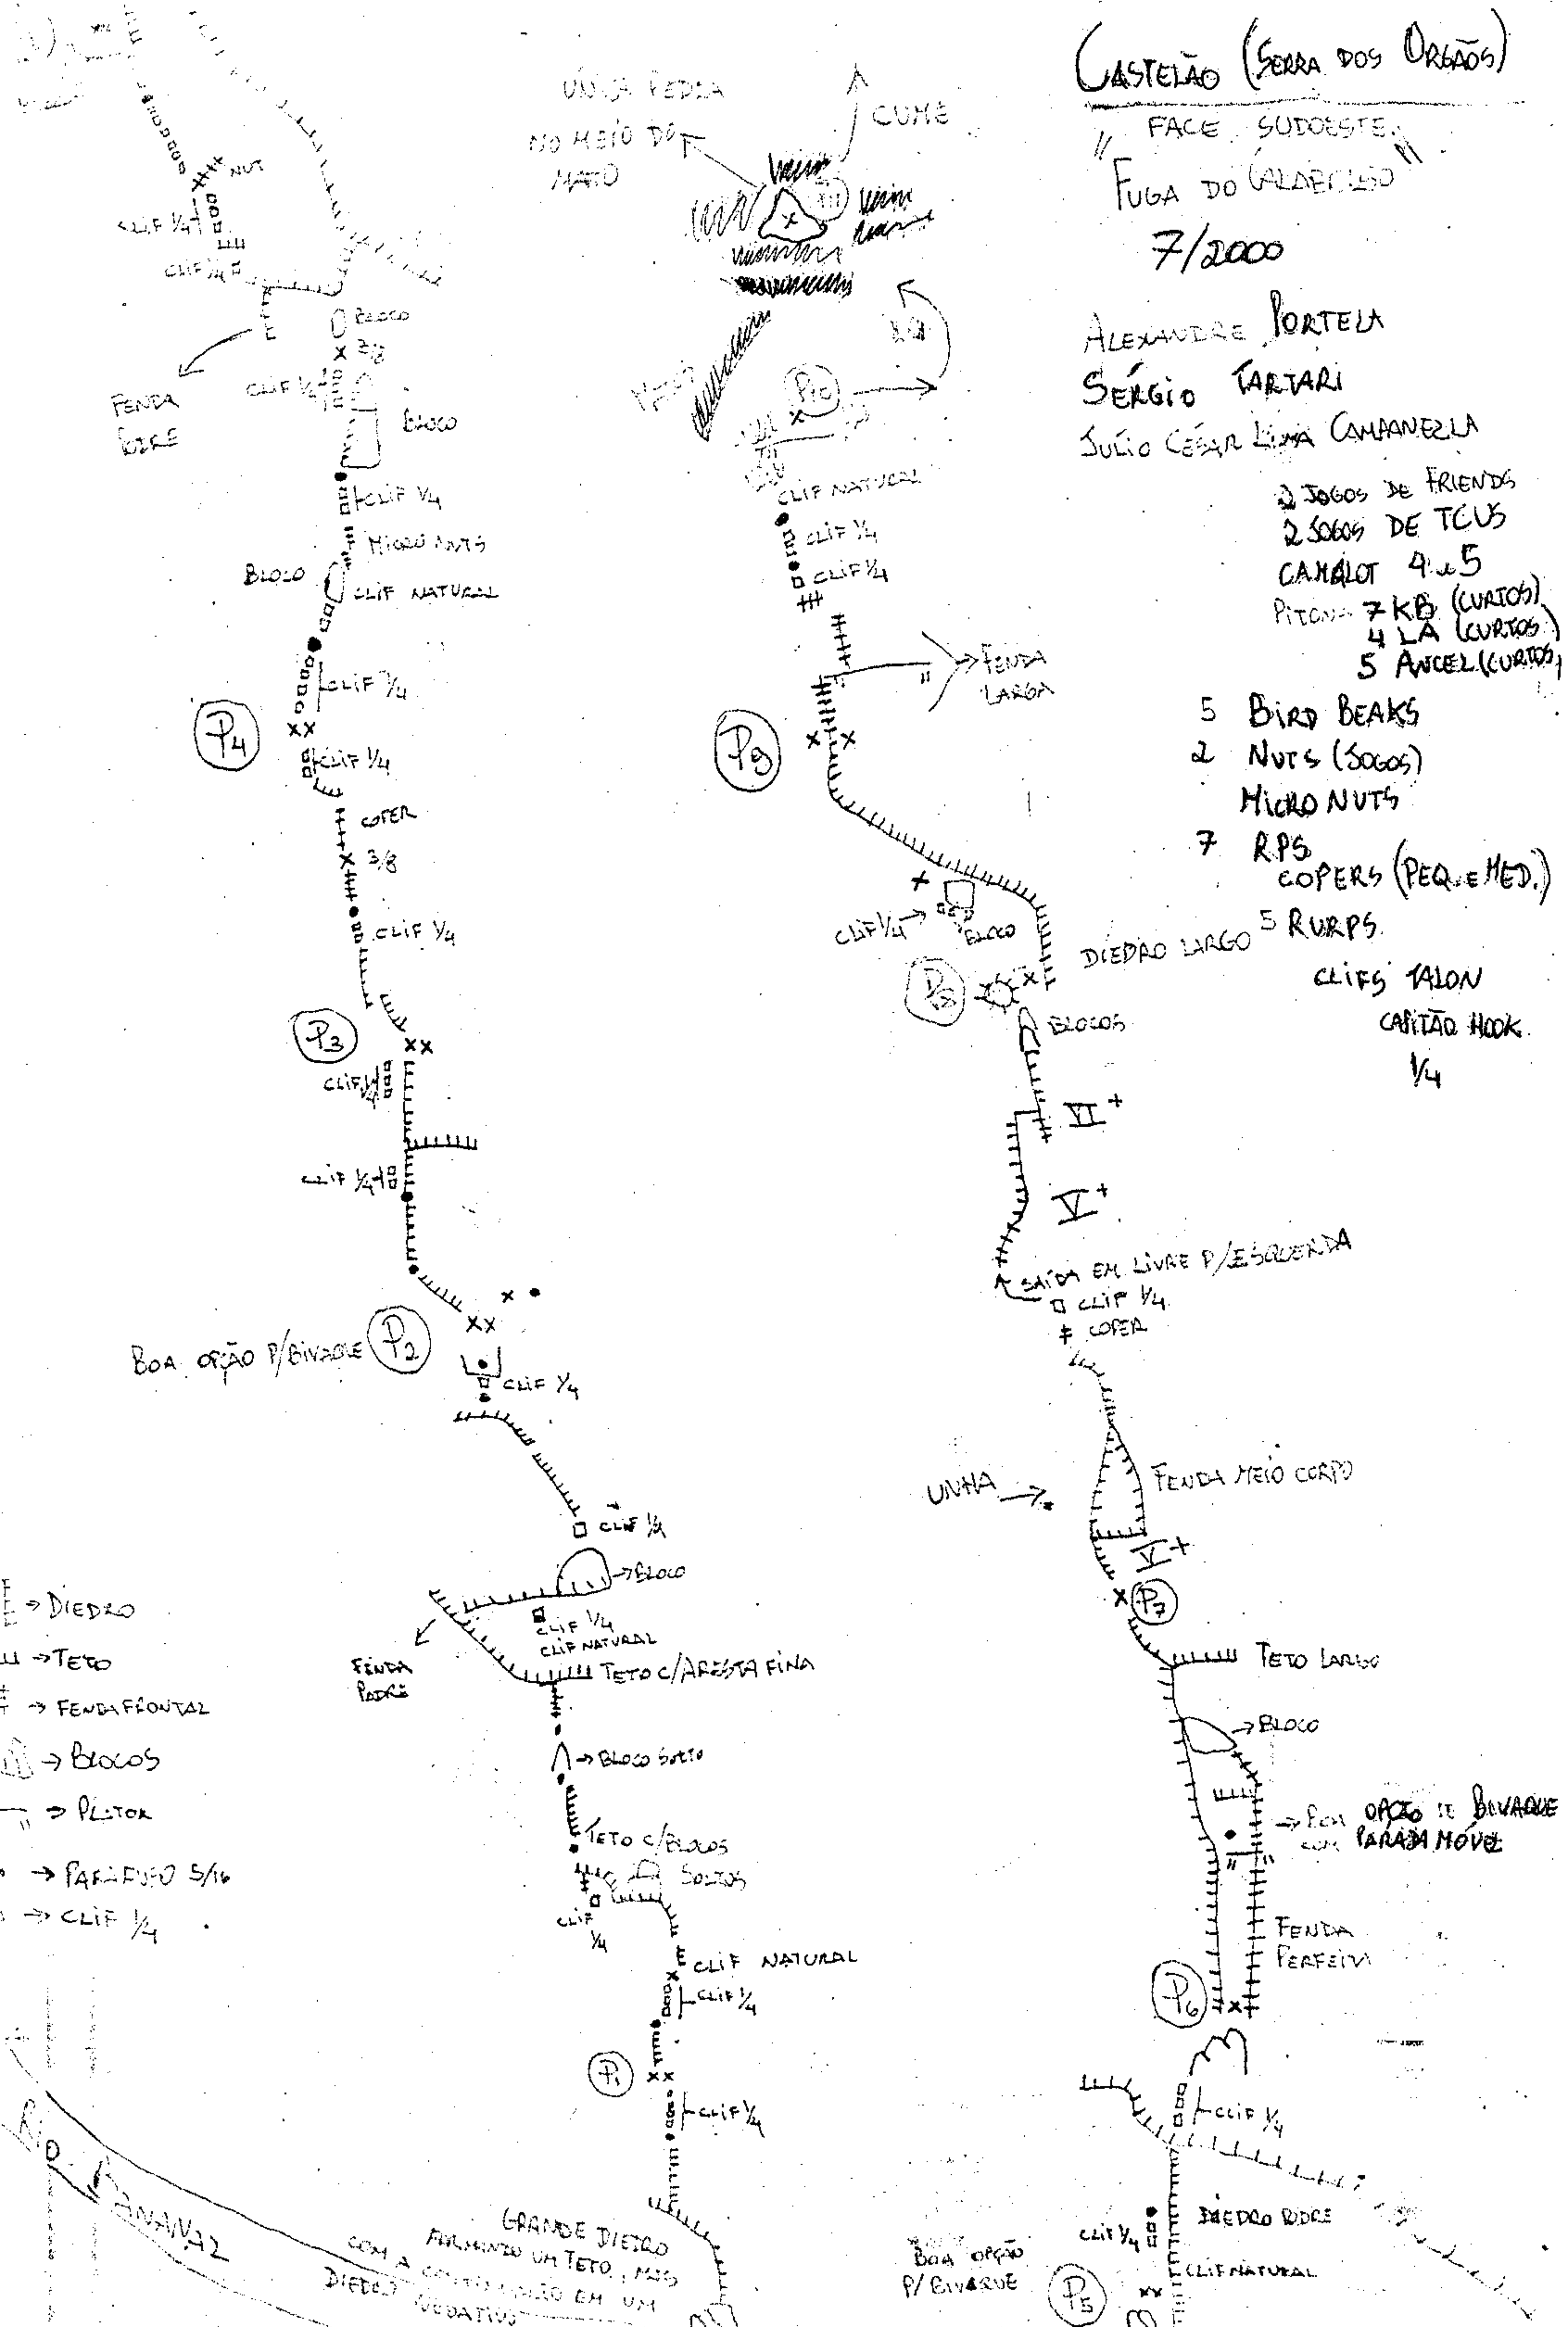 CASTELÃO (SERRA DOS ORGÃOS)
FACE SUDOESTE
"FUGA DO
7/2000
ALEXANDRE PORTELA
SÉRGIO TARTARI
JULIO CÉSAR LIMA CAMPANELLA
2 JOGOS DE FRIENDS
2 JOGOS DE TCUS
CAMALOT 4 e 5
PITONS 7 KB (CURTOS)
4 LA (CURTOS)
5 ANGEL (CURTOS)
5 BIRD BEAKS
2 NUTS (JOGOS)
MICRO NUTS
7 RPS
COPERS (PEQ. e MED.)
5 RURPS
CLIFS TALON
CAPITÃO HOOK
1/4
NUT
CLIF 1/4
CLIF 1/4
BLOCO
3/8
CLIF 1/4
BLOCO
FENDA
PODRE
CLIF 1/4
MICRO NUTS
BLOCO
CLIF NATURAL
CLIF 1/4
P4
CLIF 1/4
COPER
3/8
CLIF 1/4
P3
CLIF 1/4
CLIF 1/4
BOA OPÇÃO P/BIVAQUE P2
CLIF 1/4
CLIF 1/4
→BLOCO
CLIF 1/4
CLIF NATURAL
FENDA
PODRE
TETO C/ARESTA FINA
→BLOCO SOLTO
TETO C/BLOCOS
SOLTOS
CLIF
1/4
CLIF NATURAL
CLIF 1/4
P1
CLIF 1/4
GRANDE DIEDRO
FORMANDO UM TETO, MAS
COM A CONTINUAÇÃO EM UM
DIEDRO NEGATIVO
→ DIEDRO
→ TETO
→ FENDA FRONTAL
→ BLOCOS
→ PLATOR
→ PARAFUSO 5/16
→ CLIF 1/4
RIO
ANANAZ
ÚNICA PEDRA
NO MEIO DO
MATO
CUME
P10
CLIF NATURAL
CLIF 1/4
CLIF 1/4
→FENDA
LARGA
P9
CLIF 1/4→
BLOCO
DIEDRO LARGO
P8
BLOCOS
VI+
V+
SAÍDA EM LIVRE P/ESQUERDA
CLIF 1/4
COPER
UNHA →
FENDA MEIO CORPO
V+
P7
TETO LARGO
→BLOCO
→ BOA OPÇÃO DE BIVAQUE
COM PARADA MÓVEL
FENDA
PERFEITA
P6
CLIF 1/4
DIEDRO PODRE
CLIF 1/4
CLIF NATURAL
BOA OPÇÃO
P/ BIVAQUE
P5